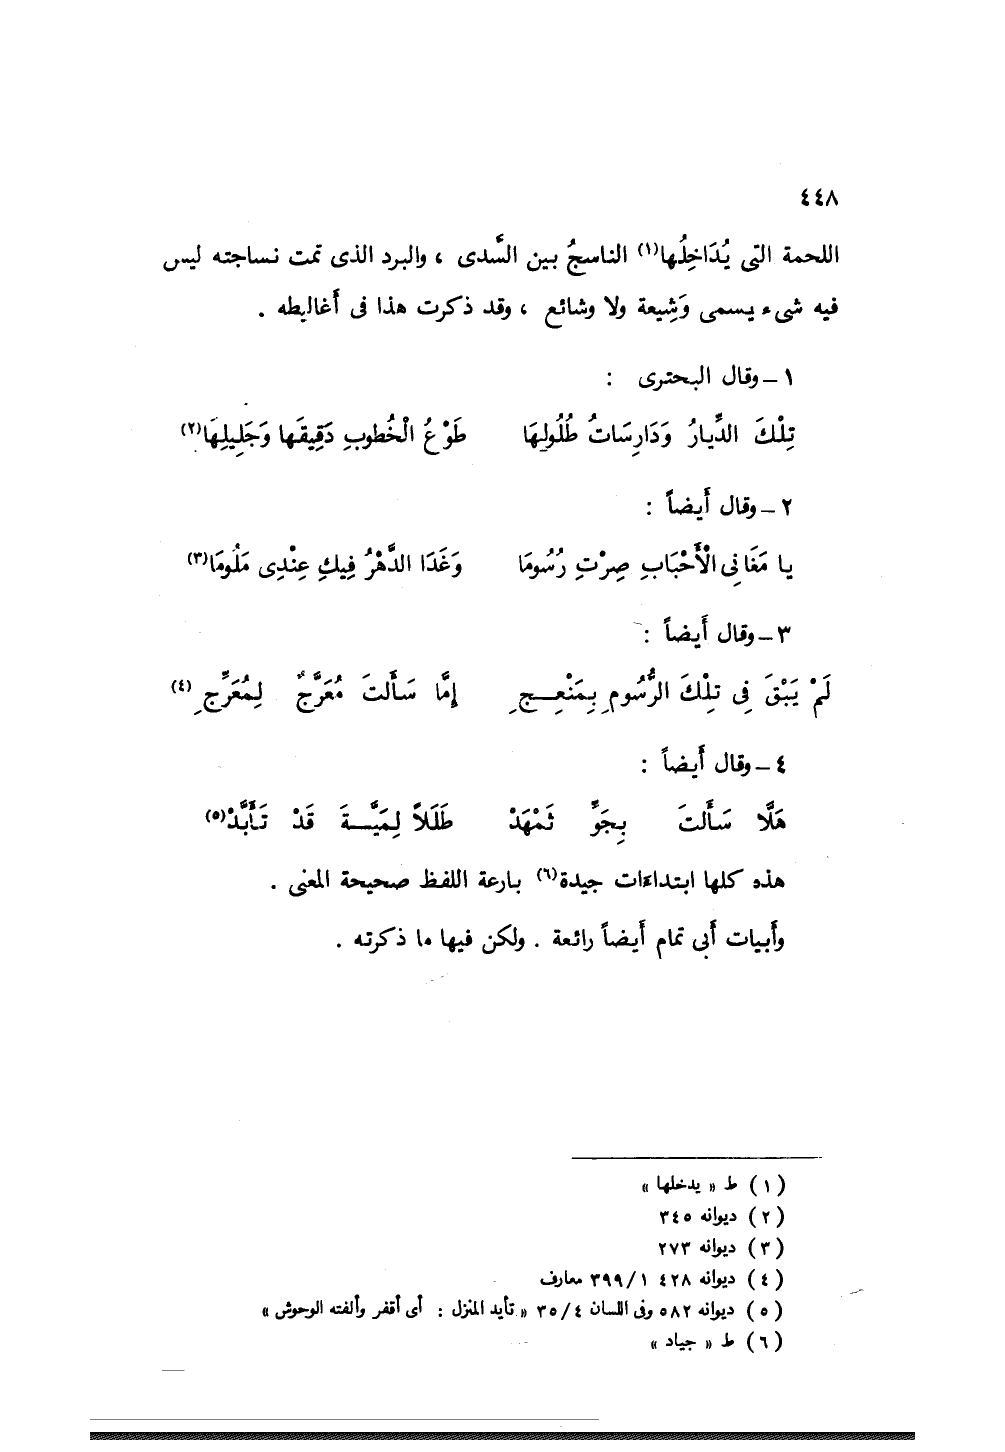 ٤٤٨
اللحمة التى يُدَاخِلُها(١) الناسجُ بين السَّدى ، والبرد الذى تمت نساجته ليس
فيه شىء يسمى وَشِيعة ولا وشائع ، وقد ذكرت هذا فى أَغاليطه .
١ – وقال البحترى :
تِلْكَ الدِّيارُ وَدَارِسَاتُ طُلُولِهَا طَوْعُ الْخُطوبِ دَقِيقَها وَجَلِيلِهَا(٢)
٢ – وقال أَيضاً :
يا مَغَانِى الْأَحْبَابِ صِرْتِ رُسُومَا وَغَدَا الدَّهْرُ فِيكِ عِنْدِى مَلُومَا(٣)
٣ – وقال أَيضاً :
لَمْ يَبْقَ فِى تِلْكَ الرُّسُومِ بِمَنْعِجِ إِمَّا سَأَلتَ مُعَرَّجٌ لِمُعَرِّجِ (٤)
٤ – وقال أَيضاً :
هَلَّا سَأَلتَ بِجَوِّ ثَمْهَدْ طَلَلاً لِمَيَّةَ قَدْ تَأَبَّدْ(٥)
هذه كلها ابتداءات جيدة(٦) بارعة اللفظ صحيحة المعنى .
وأَبيات أَبى تمام أَيضاً رائعة . ولكن فيها ما ذكرته .
(١) ط « يدخلها »
(٢) ديوانه ٣٤٥
(٣) ديوانه ٢٧٣
(٤) ديوانه ٤٢٨ ٣٩٩/١ معارف
(٥) ديوانه ٥٨٢ وفى اللسان ٣٥/٤ « تأبد المنزل : أى أقفر وألفته الوحوش »
(٦) ط « جياد »